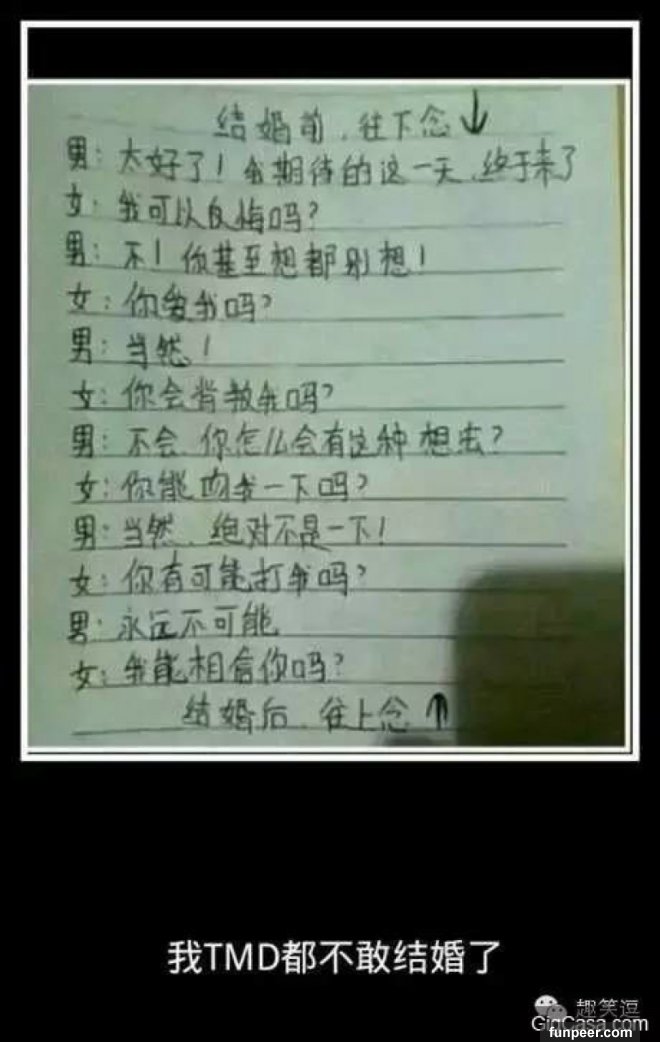 结婚前.往下念↓
男：太好了！我期待的这一天.终于来了
女：我可以反悔吗？
男：不！你甚至想都别想！
女：你爱我吗？
男：当然！
女：你会背叛我吗？
男：不会.你怎么会有这种想法？
女：你能吻我一下吗？
男：当然.绝对不是一下！
女：你有可能打我吗？
男：永远不可能
女：我能相信你吗？
结婚后.往上念↑
我TMD都不敢结婚了
趣笑逗
GigCasa.com
funpeer.com